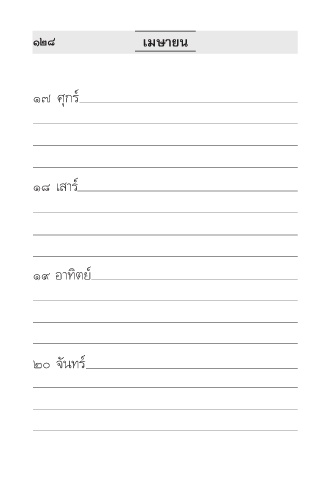 ๑๒๘
เมษายน
๑๗ ศุกร์
๑๘ เสาร์
๑๙ อาทิตย์
๒๐ จันทร์